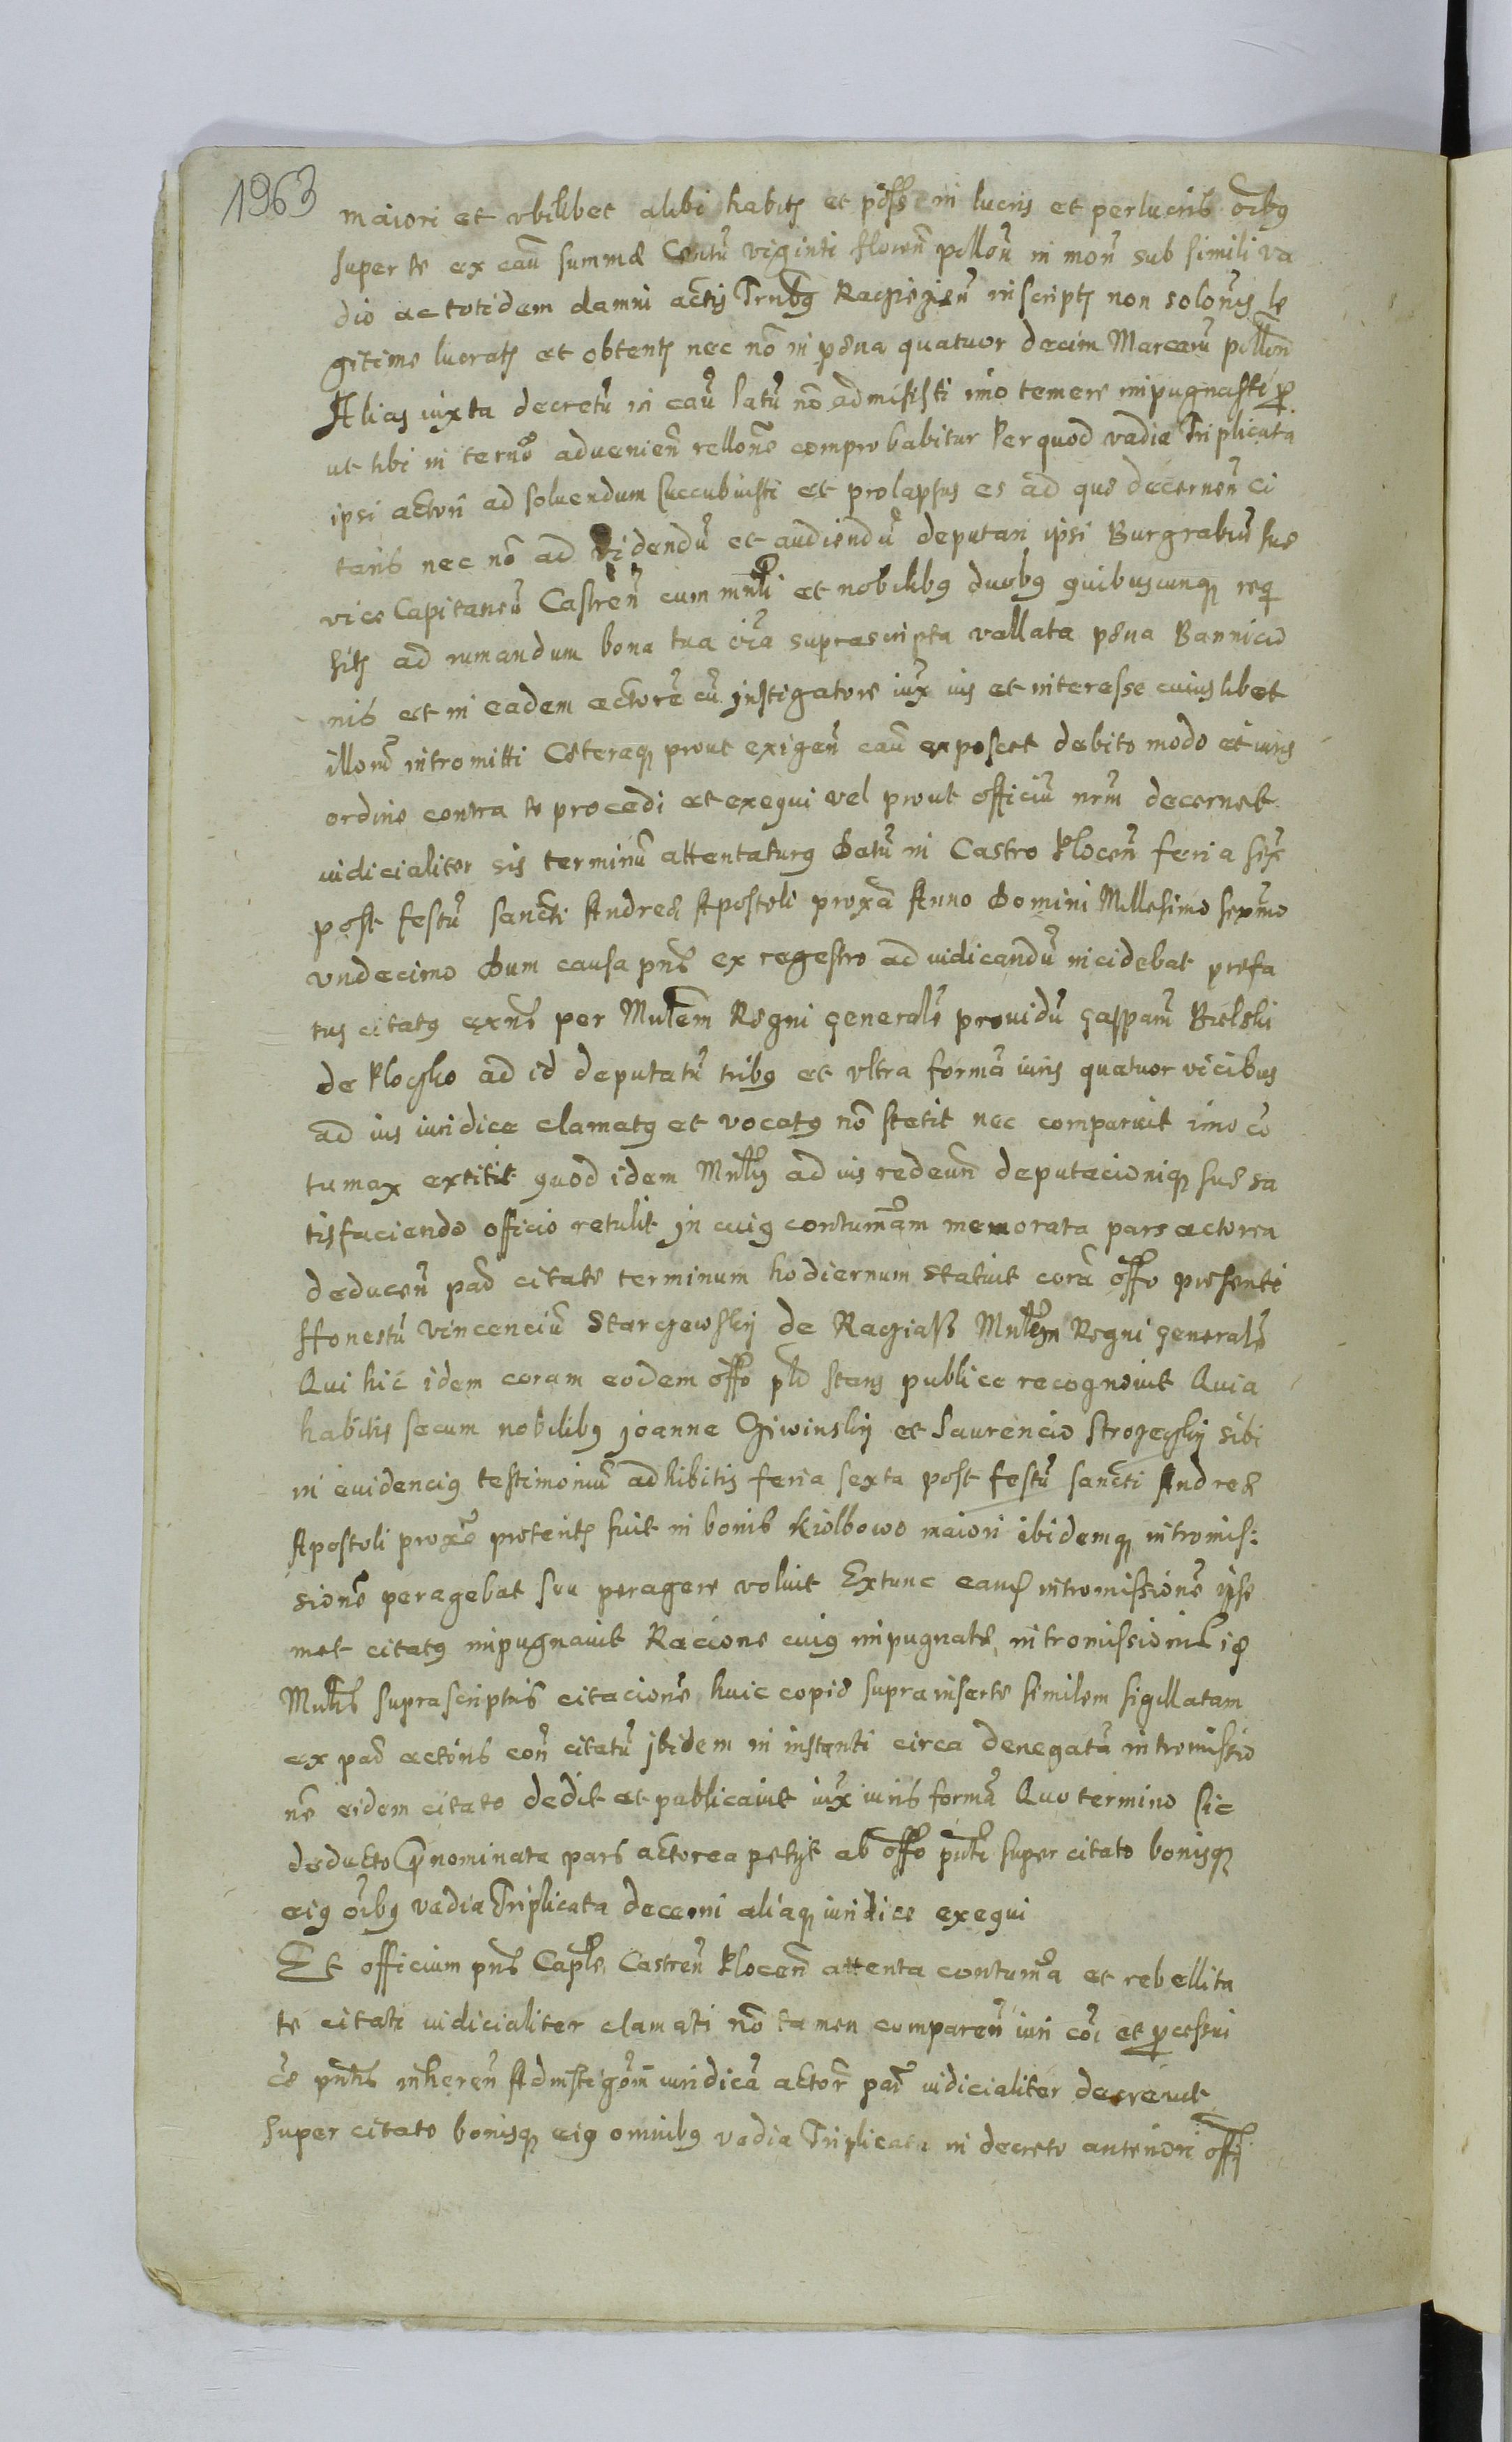 1963
maiori et vbilibet alibi habitis et in lucris et perlucris oĩbus
super te ex caũ summæ Centũ viginti floreñ polloñ in moñ sub simili va
dio ac totidem damni actis Trnbus inscriptis non solonis le
gitime lucratis et obtentis nec nõ in pæna quatuor decim Marcarũ polloñ
Alias iuxta decretũ in caũ latũ nõ admisisti imo temere impugnasti
ut tibi in termõ advenieñ rellone comprobabitur Per quod vadia Triplicata
ipsi actori ad soluendum succubuisti et prolapsus es ad que decerneñ ci
taris nec nõ ad videndũ et audiendũ deputari ipsi Burgrabiũ sue
vice Capitaneũ Castreñ cum mnli et nobilibus duobus quibuscunque requi
sitis ad rumandum bona tua oĩa suprascripta vallata pæna Bannicio
nis et in eadem actorẽ cũ instigatore iux ius et interesse cuiuslibet
illorũ intromitti Cæteraque prout exigeñ caũ exposcet debito modo et iuris
ordine contra te procedi et exequi vel prout officiũ nrm decernet
iudicialiter sis terminũ attentaturus Datũ in Castro Ploceñ feria sex
post festũ sancti Andreæ Apostoli proxã Anno Domini Millesimo sexmo
vndecimo Dum causa pns ex regestro ad iudicandũ incidebat prefa
tus citatus exns per Mnlem Regni generalẽ prouidũ gasparũ Bielski
de Plocsko ad id deputatũ tribus et vltra formã iuris quatuor vicibus
ad ius iuridice clamatus et vocatus nõ stetit nec comparuit imo cõ
tumax extitit quod idem Mnlis ad ius redeuñ deputacionique sue sa
tisfaciendo officio retulit in cuius contumam memorata pars actorea
deduceñ citate terminum hodiernum statuit corã offo presenti
Honestũ Vincenciũ Stargewskij de Raciasz Mnlem Regni generalẽ
Qui hic idem coram eodem offo stans publice recognouit Quia
habitis secum nobilibus joanne Giwinskij et Laurencio Strozeskij sibi
in euidencius testimoniũ adhibitis feria sexta post festũ sancti Andreæ
Apostoli proxe preteritis fuit in bonis Kiolbowo maiori ibidemque intromis:
sionẽ peragebat seu peragere voluit Extunc eand intromissionẽ ipse
met citatus impugnauit Racione cuius impugnatæ intromissionis
Mnlis suprascriptus citacionẽ huic copiæ suprainsertæ similem sigillatam
ex actoris coñ citatũ jbidem in instanti circa denegatã intromissio
nẽ eidem citato dedit et publicauit iux iuris formã Quo termino sic
deducto prenominata pars actorea petyt ab offo pnti super citato bonisque
eius oĩbus vadia Triplicata decerni aliaque iuridice exequi
Et officium pns Caple Castreñ Ploceñ attenta contuma et rebellita
te citati iudicialiter clamati nõ tamen compareñ iuri coi et processui
pntis inhereñ Adinstigõm iuridicã actor iudicialiter decreuit
super citato bonisque eius omnibus vadia Triplicata in decreto anteriori offij